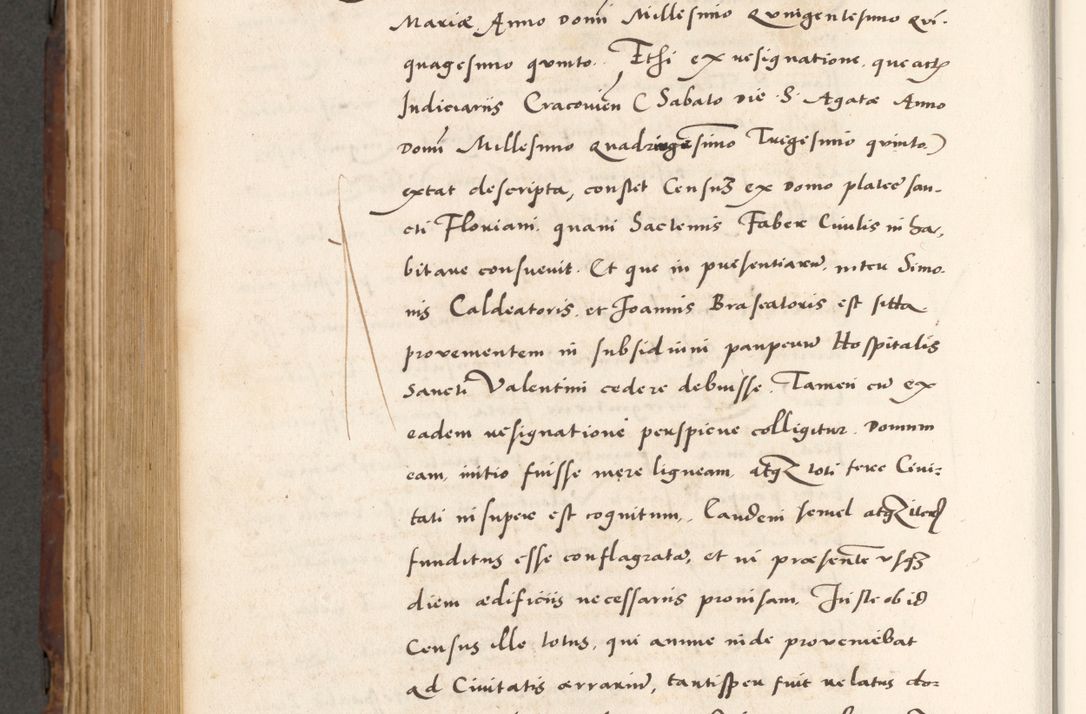 Mariæ Anno Domi Millesimo Quingentesimo Qui-
quagesimo quinto. Et si ex resignatione, que actis
Iudiciariis Cracovien ( Sabato Die S. Agatæ Anno
Domi Millesimo Quadringesimo Trigesimo quinto )
extat descripta, constet Census ex Domo plateæ san-
cti Floriani, quam Faber Civilis inha-
bitare consuevit. Et que in presentiarum, inter Simo-
nis Caldeatoris, et Joannis Braseatoris est sitta
provementem in subsidium pauperum Hospitalis
Sancti Valentini cedere debuisse. Tamen cum ex
eadem resignatione perspicue colligitur. Domum
eam, initio fuisse mere ligneam, atque toti fere Civi-
tati insuper est cognitum, eandem semel atque iterum
funditus esse conflagratam, et in præsentem usque
diem ædificiis necessariis provisam, Iuste ob id
Census ille totus, qui annue inde proveniebat
ad Civitatis ærarium, tantisper fuit relatus do-